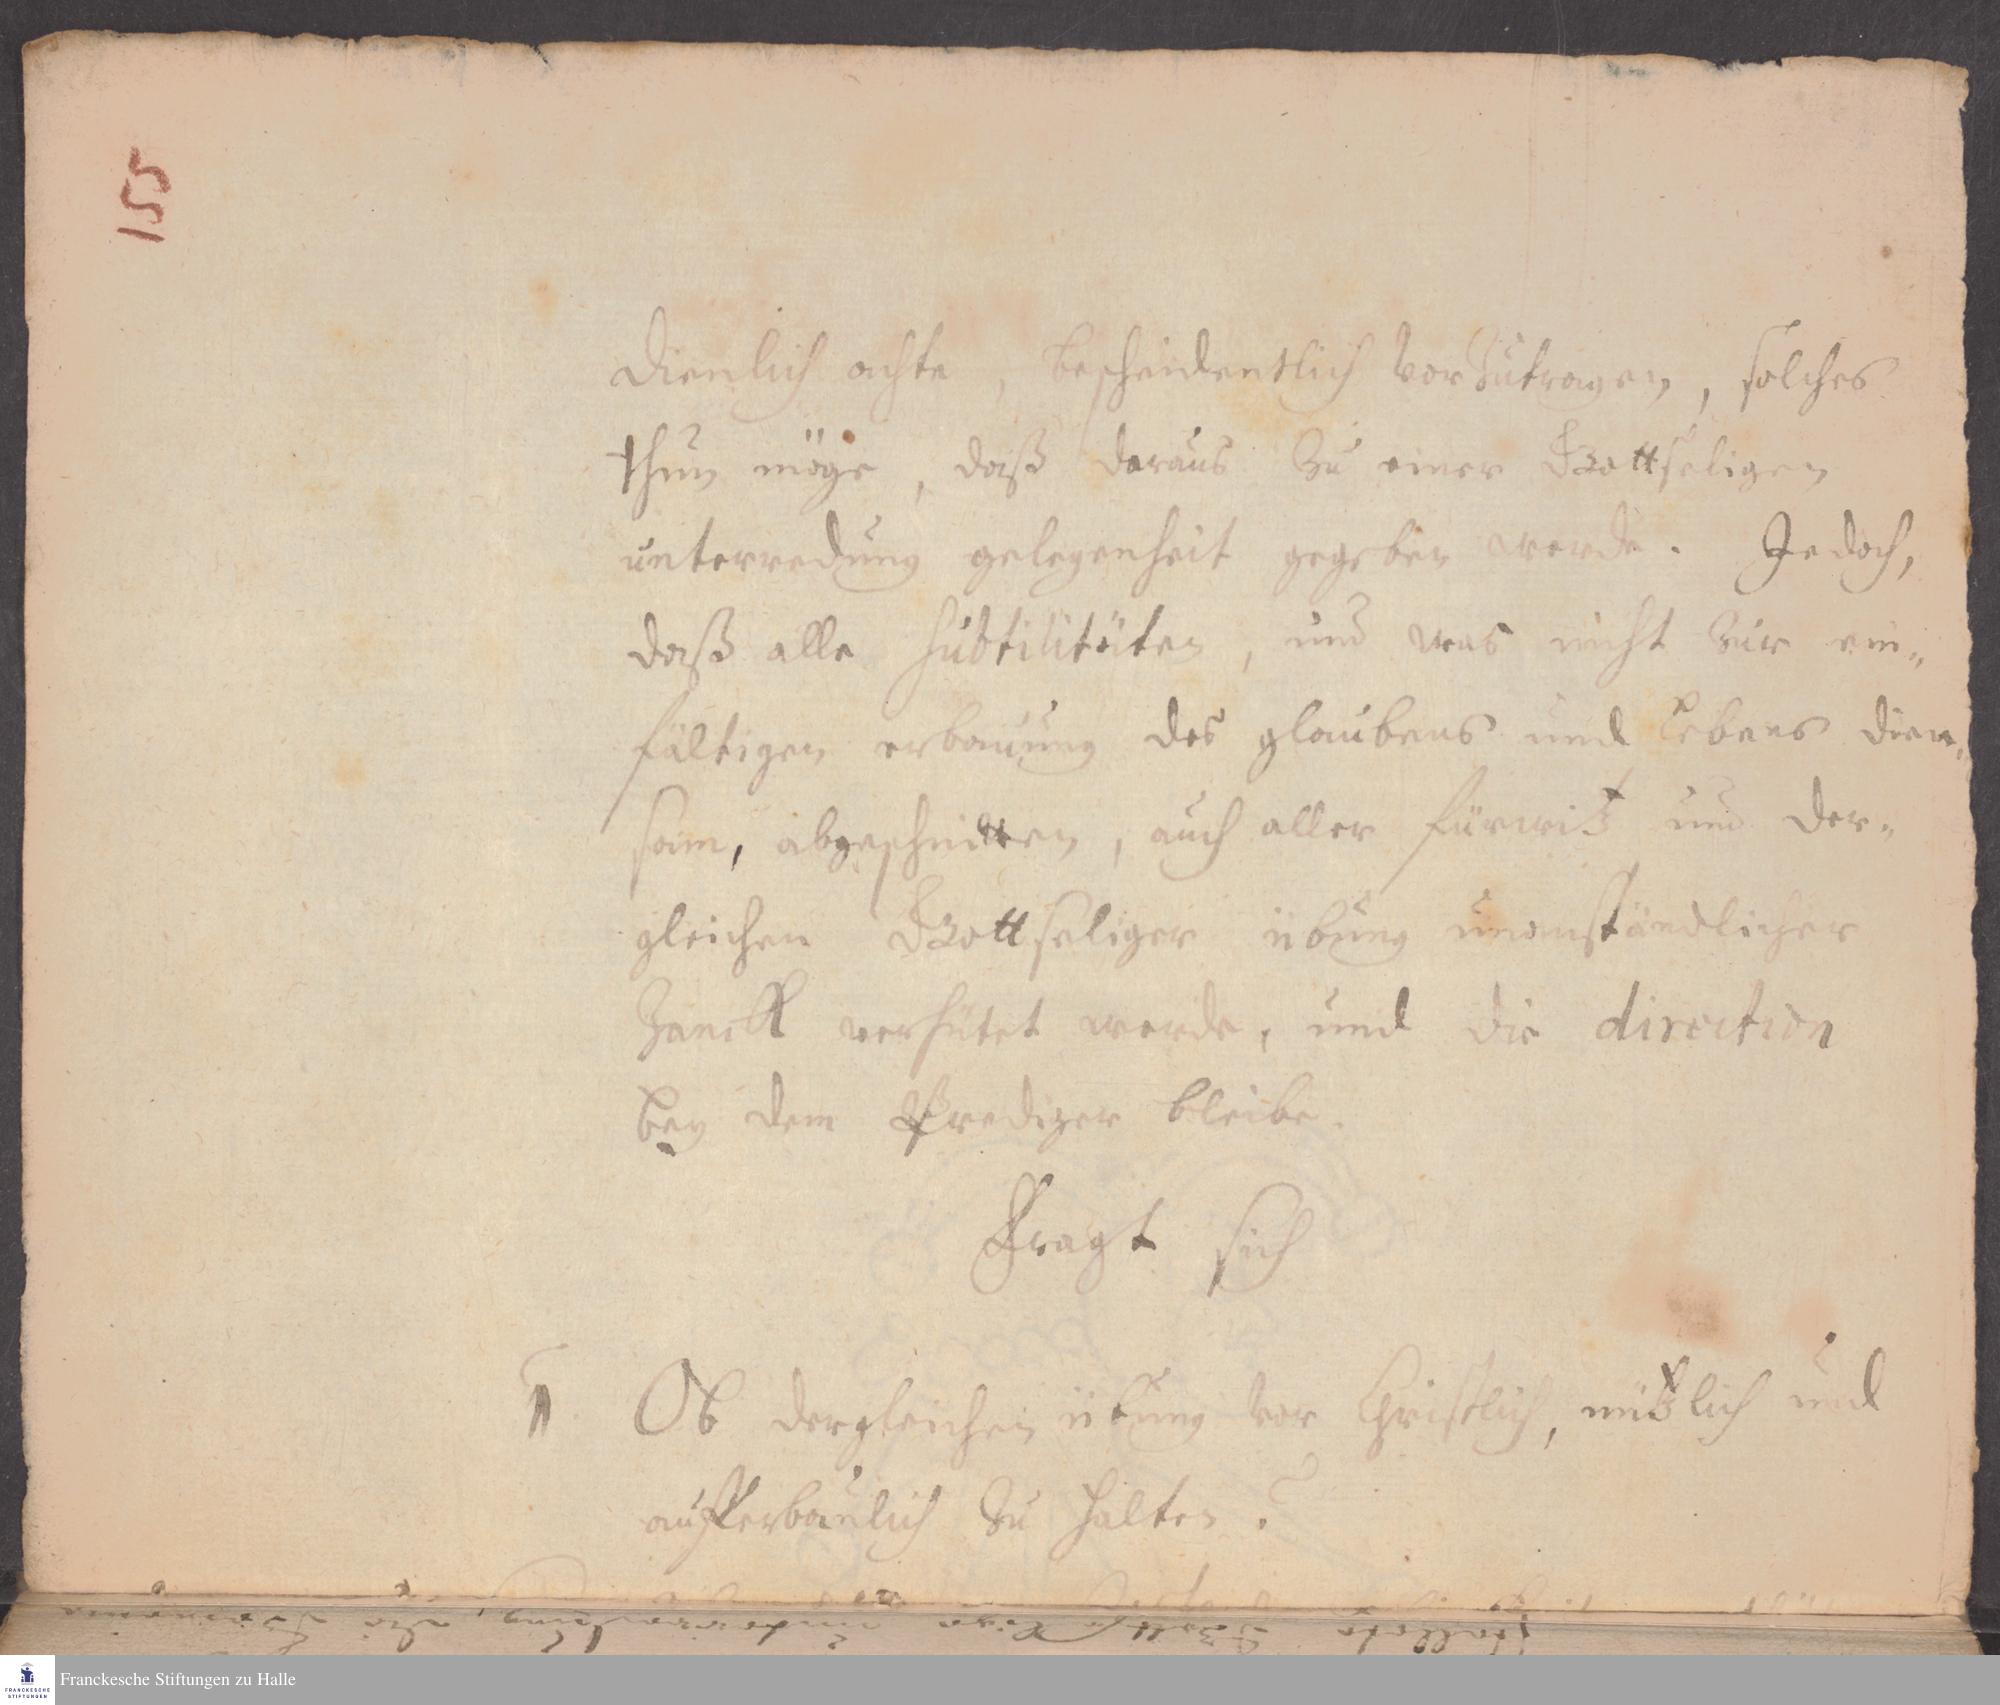 155
dienlich achte, bescheidentlich vorzutragen, solches
thun möge, daß daraus zu einer Gottseligen
unterredung gelegenheit gegeben werde. Jedoch,
daß alle subtilitäten, und was nicht zur ein-
fältigen erbauung des glaubens und lebens dien-
sam, abgeschnitten, auch aller fürwitz und der-
gleichen Gottseliger übung unanständlicher
Zanck verhütet werde, und die direction
bey dem Prediger bleibe.
Fragt sich
1. Ob dergleichen übung vor Christlich, nützlich und
aufferbaulich zu halten?
FRANCKESCHE
STIFTUNGEN
Franckesche Stiftungen zu Halle